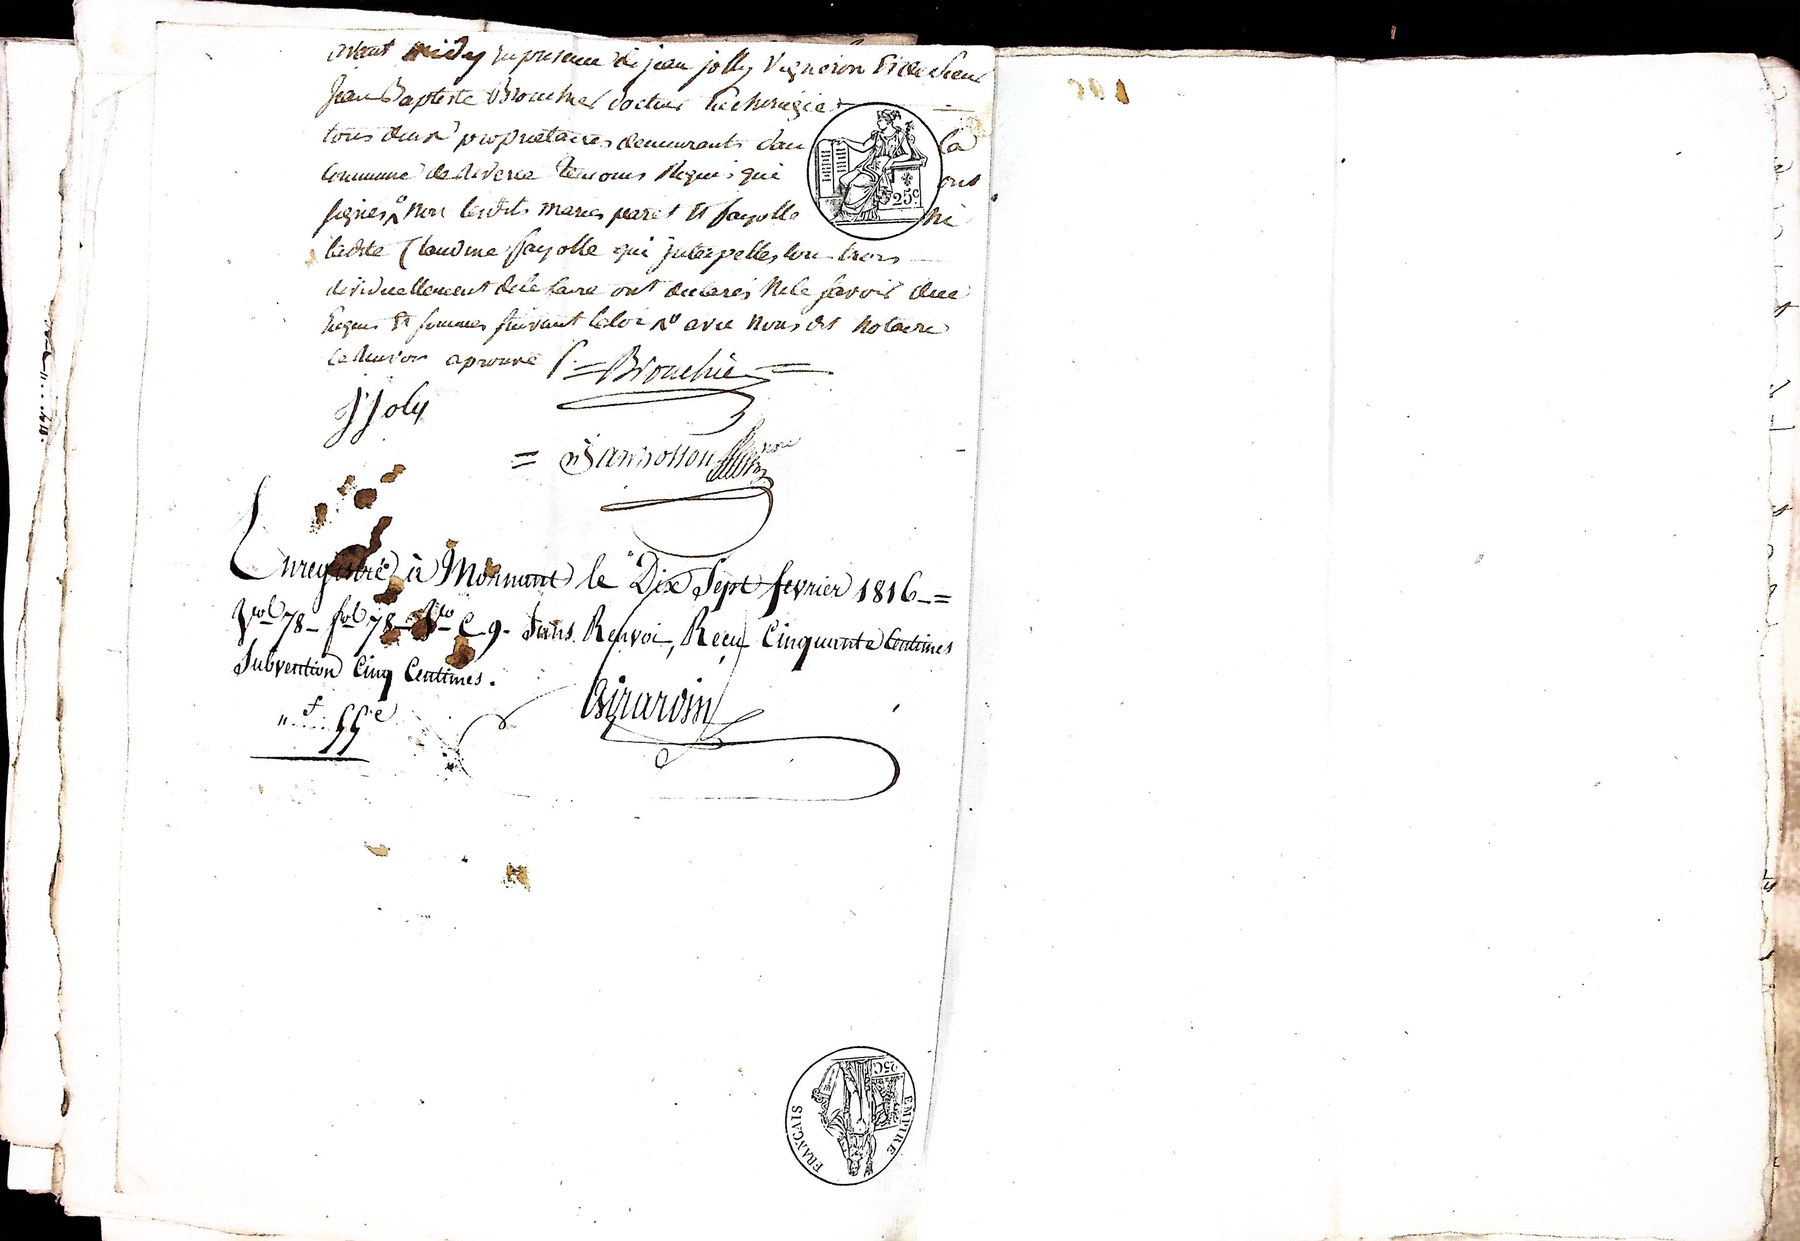 avant midy en presence de jean jolly vigneron et de sieur
jean Baptiste Brouchié docteur en chirurgie
tous deux propriétaires demeurants dans la
commune de témoins Requis qui ont
signes non lesdits maries paret et fayolle ni
ladite Claudine fayolle qui interpelles tous trois
dividuellement de le faire ont declarés ne le savoir de ce
Enquis et sommes suivant la loi avec nous dit notaire
le Renvoi aprouvé Brouchié
J Joly
Enregistré à Mornant le Dix Sept fevrier 1816 =
Vol 78 - fol 78 - Vo C 9. Sans Renvoi, Reçu Cinquante Centimes
Subvention Cinq Centimes.
" f 55 c
Girardin
25 c
25C.
EMPIRE
FRANÇAIS